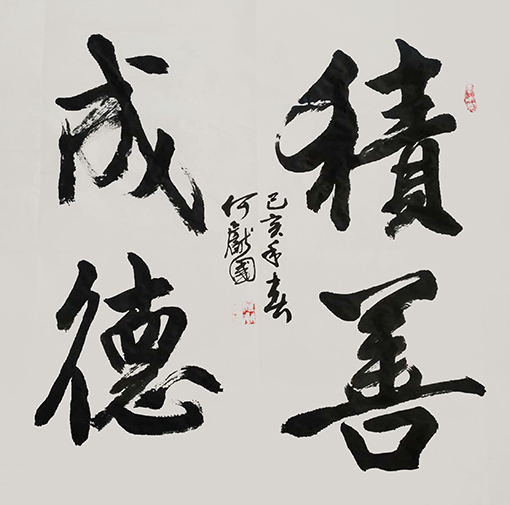 積善
成德
己亥年春
何獻國